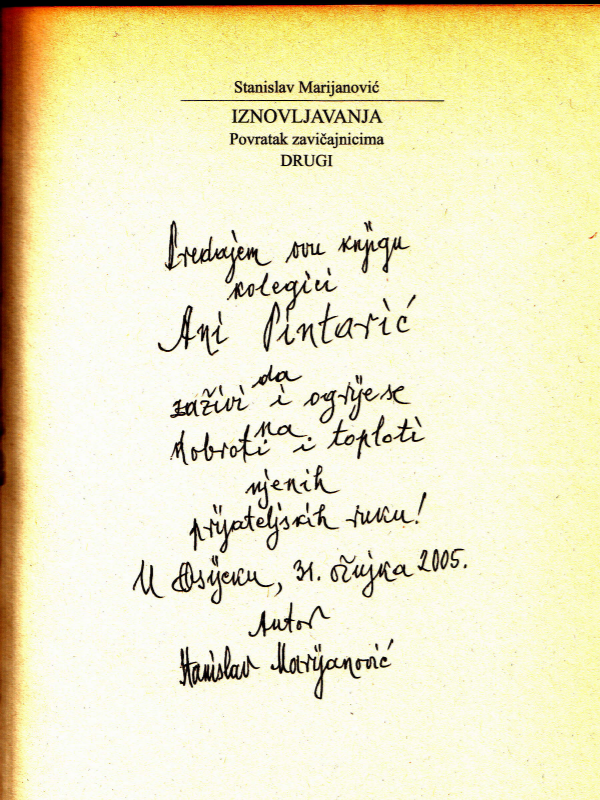 Stanislav Marijanović
IZNOVLJAVANJA
Povratak zavičajnicima
DRUGI
Predajem ovu knjigu
kolegici
Ani Pintarić
da
zaživi i ogrije se
na
dobroti i toploti
njenih
prijateljskih ruku!
U Osijeku, 31. ožujka 2005.
Autor
Stanislav Marijanović